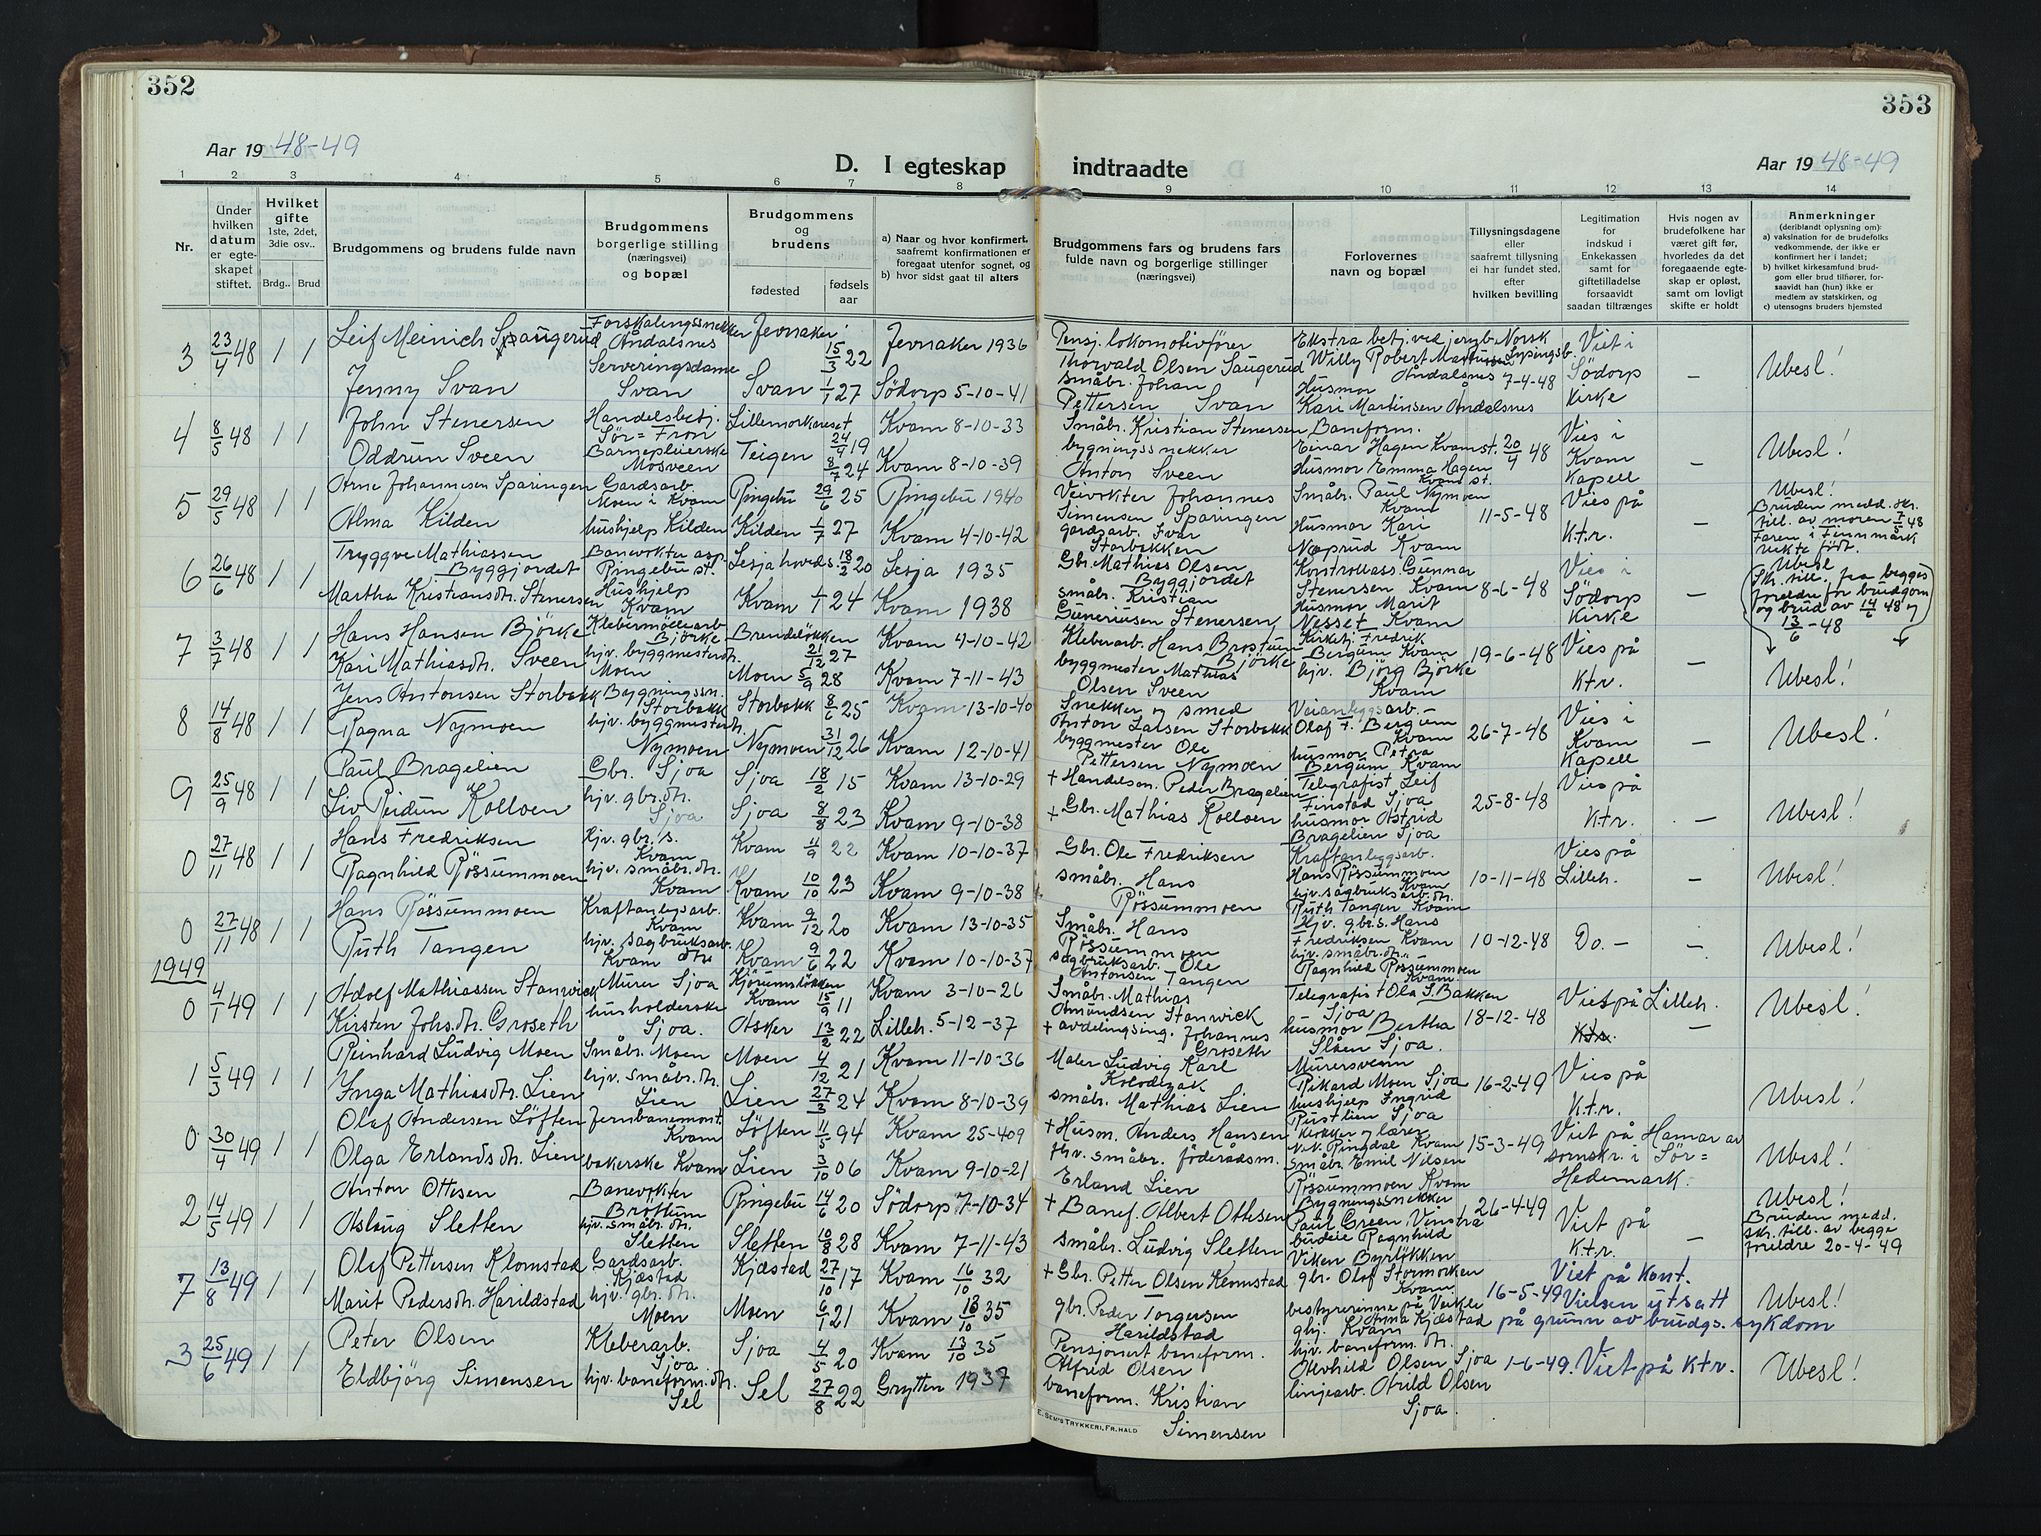 352
353
Aar 1948-49
D. I egteskap
indtraadte
Aar 1948-49
1 2 3 4 5 6 7 8 9 10 11 12 13 14
Nr.
Under hvilken datum er egteskapet stiftet.
Hvilket gifte 1ste, 2det, 3die osv..
Brdg.. Brud
Brudgommens og brudens fulde navn
Brudgommens borgerlige stilling (næringsvei) og bopæl
Brudgommens og brudens
fødested
fødselsaar
a) Naar og hvor konfirmert, saafremt konfirmationen er foregaat utenfor sognet, og
b) hvor sidst gaat til alters
Brudgommens fars og brudens fars fulde navn og borgerlige stillinger (næringsvei)
Forlovernes navn og bopæl
Tillysningsdagene eller saafremt tillysning ei har fundet sted, efter hvilken bevilling
Legitimation for indskud i Enkekassen samt for giftetilladelse forsaavidt saadan tiltrænges
Hvis nogen av brudefolkene har været gift før, hvorledes da det foregaaende egteskap er opløst, samt om lovligt skifte er holdt
Anmerkninger (deriblandt oplysning om): a) vaksination for de brudefolks vedkommende, der ikke er konfirmert her i landet; b) hvilket kirkesamfund brudgom eller brud tilhører, forsaavidt han (hun) ikke er medlem av statskirken, og c) utensogns bruders hjemsted
3 23/4 48 1 1 Leif Meinich Spaugerud Forskalingssnekker Åndalsnes Jevnaker 15/3 22 Jevnaker 1936 Pensj. lokomotivfører Thorvald Olsen Saugerud Ekstra betj. ved jernb. Norsk Willy Robert Åndalsnes 7-4-48 Viet i Södorp Kirke — Ubesl!
Jenny Svan Serveringsdame Svan Svan 1/1 27 Södorp 5-10-41 småbr. Johan Pettersen Svan Husmor Kari Martinsen Åndalsnes
4 8/5 48 1 1 John Stenersen Handelsbetj. Sör=Fron 24/9 19 Kvam 8-10-33 Småbr. Kristian Stenersen Baneform. Einar Hagen Kvam st. 20/4 48 Vies i Kvam Kapell — Ubesl!
Oddrun Sveen Barnepleierske Mosveen Teigen 8/7 24 Kvam 8-10-39 bygningssnekker Anton Sveen Husmor Emma Hagen Kvam st.
5 29/5 48 1 1 Arne Johannesen Sparingen Gardsarb. Moen i Kvam Ringebu 29/6 25 Ringebu 1940 Veivokter Johannes Simensen Sparingen Småbr. Paul Nymoen Kvam 11-5-48 Vies på Ktr. — Ubesl! Bruden medd. skr. till. av moren 7/5 48 Faren i Finnmark
Alma Kilden hushjelp Kilden Kilden 1/7 27 Kvam 4-10-42 gardsarb. Ivar Storbekken Husmor Kari Næprud Kvam
6 26/6 48 1 1 Tryggve Mathiassen Byggjordet Banevokter asp. Ringebu st. Lesja hoveds. 18/2 20 Lesja 1935 Gbr. Mathias Olsen Byggjordet Kontrollass. Gunnar Stenersen Kvam 8-6-48 Vies i Södorp Kirke — Ubesl (Skr. till. fra begges foreldre for brudgom og brud av 14/6 48 og 13/6-48)
Martha Kristiansdtr. Stenersen Hushjelp Kvam Kvam 1/1 24 Kvam 1938 småbr. Kristian Guneriusen Stenersen Husmor Marit Nesset Kvam
7 3/7 48 1 1 Hans Hansen Björke Klebermöllearb. Björke Brendelökken 21/12 27 Kvam 4-10-42 Kleberarb. Hans Björke Kirketj. Fredrik Bergum Kvam 19-6-48 Vies på Ktr. — Ubesl!
Kari Mathiasdtr. Sveen hjv. byggmesterdtr. Moen Moen 5/9 28 Kvam 7-11-43 byggmester Mathias Olsen Sveen hjv. Björg Björke Kvam
8 14/8 48 1 1 Jens Antonsen Storbekk Bygningssn. Storbekk Storbekk 8/6 25 Kvam 13-10-40 Snekker og smed Anton Larsen Storbekk Veianleggsarb. Olaf F. Bergum Kvam 26-7-48 Vies i Kvam Kapell — Ubesl!
Ragna Nymoen hjv. byggmesterdtr. Nymoen Nymoen 31/12 26 Kvam 12-10-41 byggmester Ole Pettersen Nymoen husmor Petra Bergum Kvam
9 25/9 48 1 1 Paul Bragelien Gbr. Sjoa Sjoa 18/2 15 Kvam 13-10-29 + Handelsm. Peder Bragelien Telegrafist Leif Finstad Sjoa 25-8-48 Vies på Ktr. — Ubesl!
Liv Reidun Kolloen hjv. gbr. dtr. Sjoa Sjoa 8/8 23 Kvam 9-10-38 + Gbr. Mathias Kolloen husmor Astrid Bragelien Sjoa
0 27/11 48 1 1 Hans Fredriksen hjv. gbr. s. Kvam Kvam 11/9 22 Kvam 10-10-37 Gbr. Ole Fredriksen Kraftanleggsarb. Hans Røssummoen Kvam 10-11-48 Vies på Lilleh. — Ubesl!
Ragnhild Røssummoen hjv. småbr. dtr. Kvam Kvam 10/10 23 Kvam 9-10-38 småbr. Hans Røssummoen hjv. sagbruksarb. dtr. Ruth Tangen Kvam
0 27/11 48 1 1 Hans Røssummoen Kraftanlegsarb. Kvam Kvam 9/12 20 Kvam 13-10-35 Småbr. Hans Røssummoen Hjv. gbr. s. Hans Fredriksen Kvam 10-12-48 Do.- — Ubesl!
Ruth Tangen hjv. sagbruksarb. dtr. Kvam Kvam 9/6 22 Kvam 10-10-37 sagbruksarb. Ole Antonsen Tangen hjv. småbr. dtr. Ragnhild Røssummoen Kvam
1949
0 4/1 49 1 1 Adolf Mathiassen Stanwick Murer Sjoa Kjörumslökken Kvam 15/9 11 Kvam 3-10-26 Småbr. Mathias Amundsen Stanwick Telegrafist Ola S. Bakken Sjoa 18-12-48 Viet på Lilleh. Ktr. — Ubesl!
Kirsten Johs.dtr. Groseth husholderske Sjoa. Asker 13/2 22 Lilleh. 5-12-37 + avdelingsing. Johannes Groseth husmor Bertha Slåen Sjoa.
1 5/3 49 1 1 Reinhard Ludvig Moen Småbr. Moen Moen 4/12 21 Kvam 11-10-36 Maler Ludvig Karl Kolodizak Murersvenn Rikard Moen Sjoa 16-2-49 Vies på Ktr. Ubesl!
Inga Mathiasdtr. Lien hjv. småbr. dtr. Lien Lien 27/3 24 Kvam 8-10-39 småbr. Mathias Lien hushjelp Ingrid Rustlien Sjoa
0 30/4 49 1 1 Olaf Andersen Löften Jernbanemont. Kvam Löften 11/5 94 Kvam 25-409 + Husm. Anders Hansen Kirkker og lærer Ringdal Kvam 15-3-49 Viet på Hamar av sornskr. i Sör=Hedemark. Ubesl!
Olga Erlandsdtr. Lien bakerske Kvam Lien 3/10 06 Kvam 9-10-21 fhv. småbr. föderådsm. Erland Lien småbr. Emil Nilsen Røssummoen Kvam
2 14/5 49 1 1 Anton Ottesen Banevokter Brottum Ringebu 14/6 20 Södorp 7-10-34 + Banef. Albert Ottesen Bygningssnekker Paul Green Vinstra 26-4-49 Viet på Ktr. — Ubesl! Bruden medd. skr. till. av begge foreldre 20-4-49
Aslaug Sletten hjv. småbr. dtr. Sletten Sletten 10/8 28 Kvam 7-11-43 småbr. Ludvig Sletten budeie Ragnhild Viken Byrlökken
7 13/8 49 1 1 Olaf Pettersen Klomstad Gardsarb. Kjæstad Kjæstad 27/10 17 Kvam 16/10 32 + Gbr. Petter Olsen Klomstad gbr. Olaf Stormorken Kvam 16-5-49 Viet på kont. Vielsen utsatt på grunn av brudgs. sykdom Ubesl!
Marit Pedersdtr. Harildstad hjv. gbr. dtr. Moen Moen 6/1 21 Kvam 13/10 35 gbr. Peder Torgersen Harildstad bestyrerinne på Veikle Anna Kjæstad Kvam
3 25/6 49 1 1 Peter Olsen Kleberarb. Sjoa Sjoa 4/5 20 Kvam 13/10 35 Pensjonert baneform. Alfred Olsen hjv. baneform. dtr. Olsen Sjoa 1-6-49. Viet på Ktr. Ubesl!
Eldbjörg Simensen hjv. baneform. dtr. Sel Sel 27/8 22 Grytten 1937 baneform. Kristian Simensen linjearb. Arild Olsen Sjoa.
E. SEM'S TRYKKERI, FR.HALD